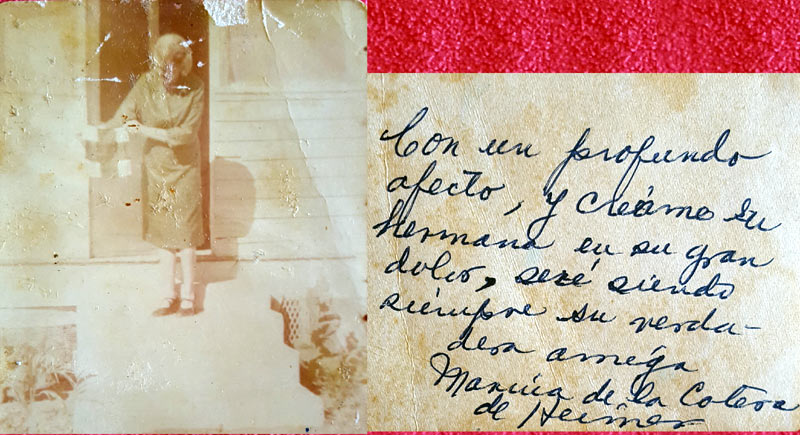 Con un profundo
afecto, y creáme su
hermana en su gran
dolor, seré siendo
siempre su verda-
dera amiga
Maruca de la Cotera
de Heimer